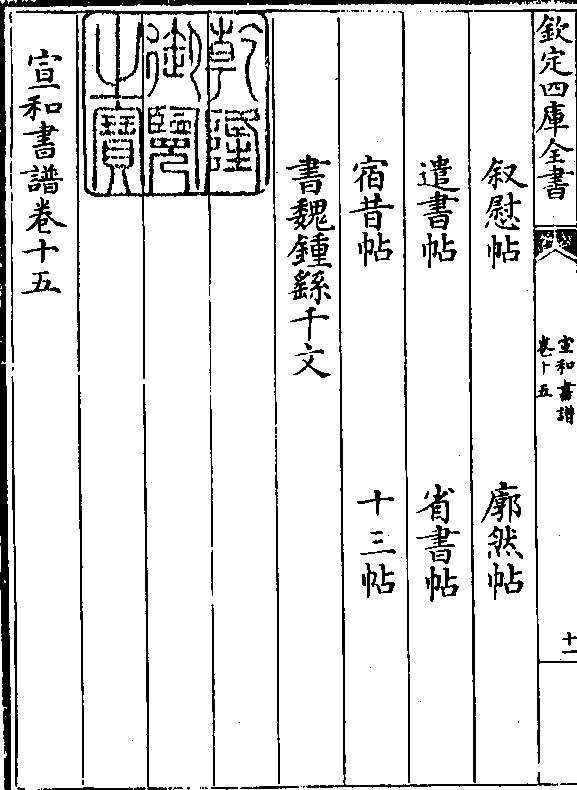 欽定四庫全書
宣和書譜
卷十五
十一
叙慰帖 廓然帖
遣書帖 省書帖
宿昔帖 十三帖
書魏鍾繇千文
乾隆
御覽
之寶
宣和書譜卷十五